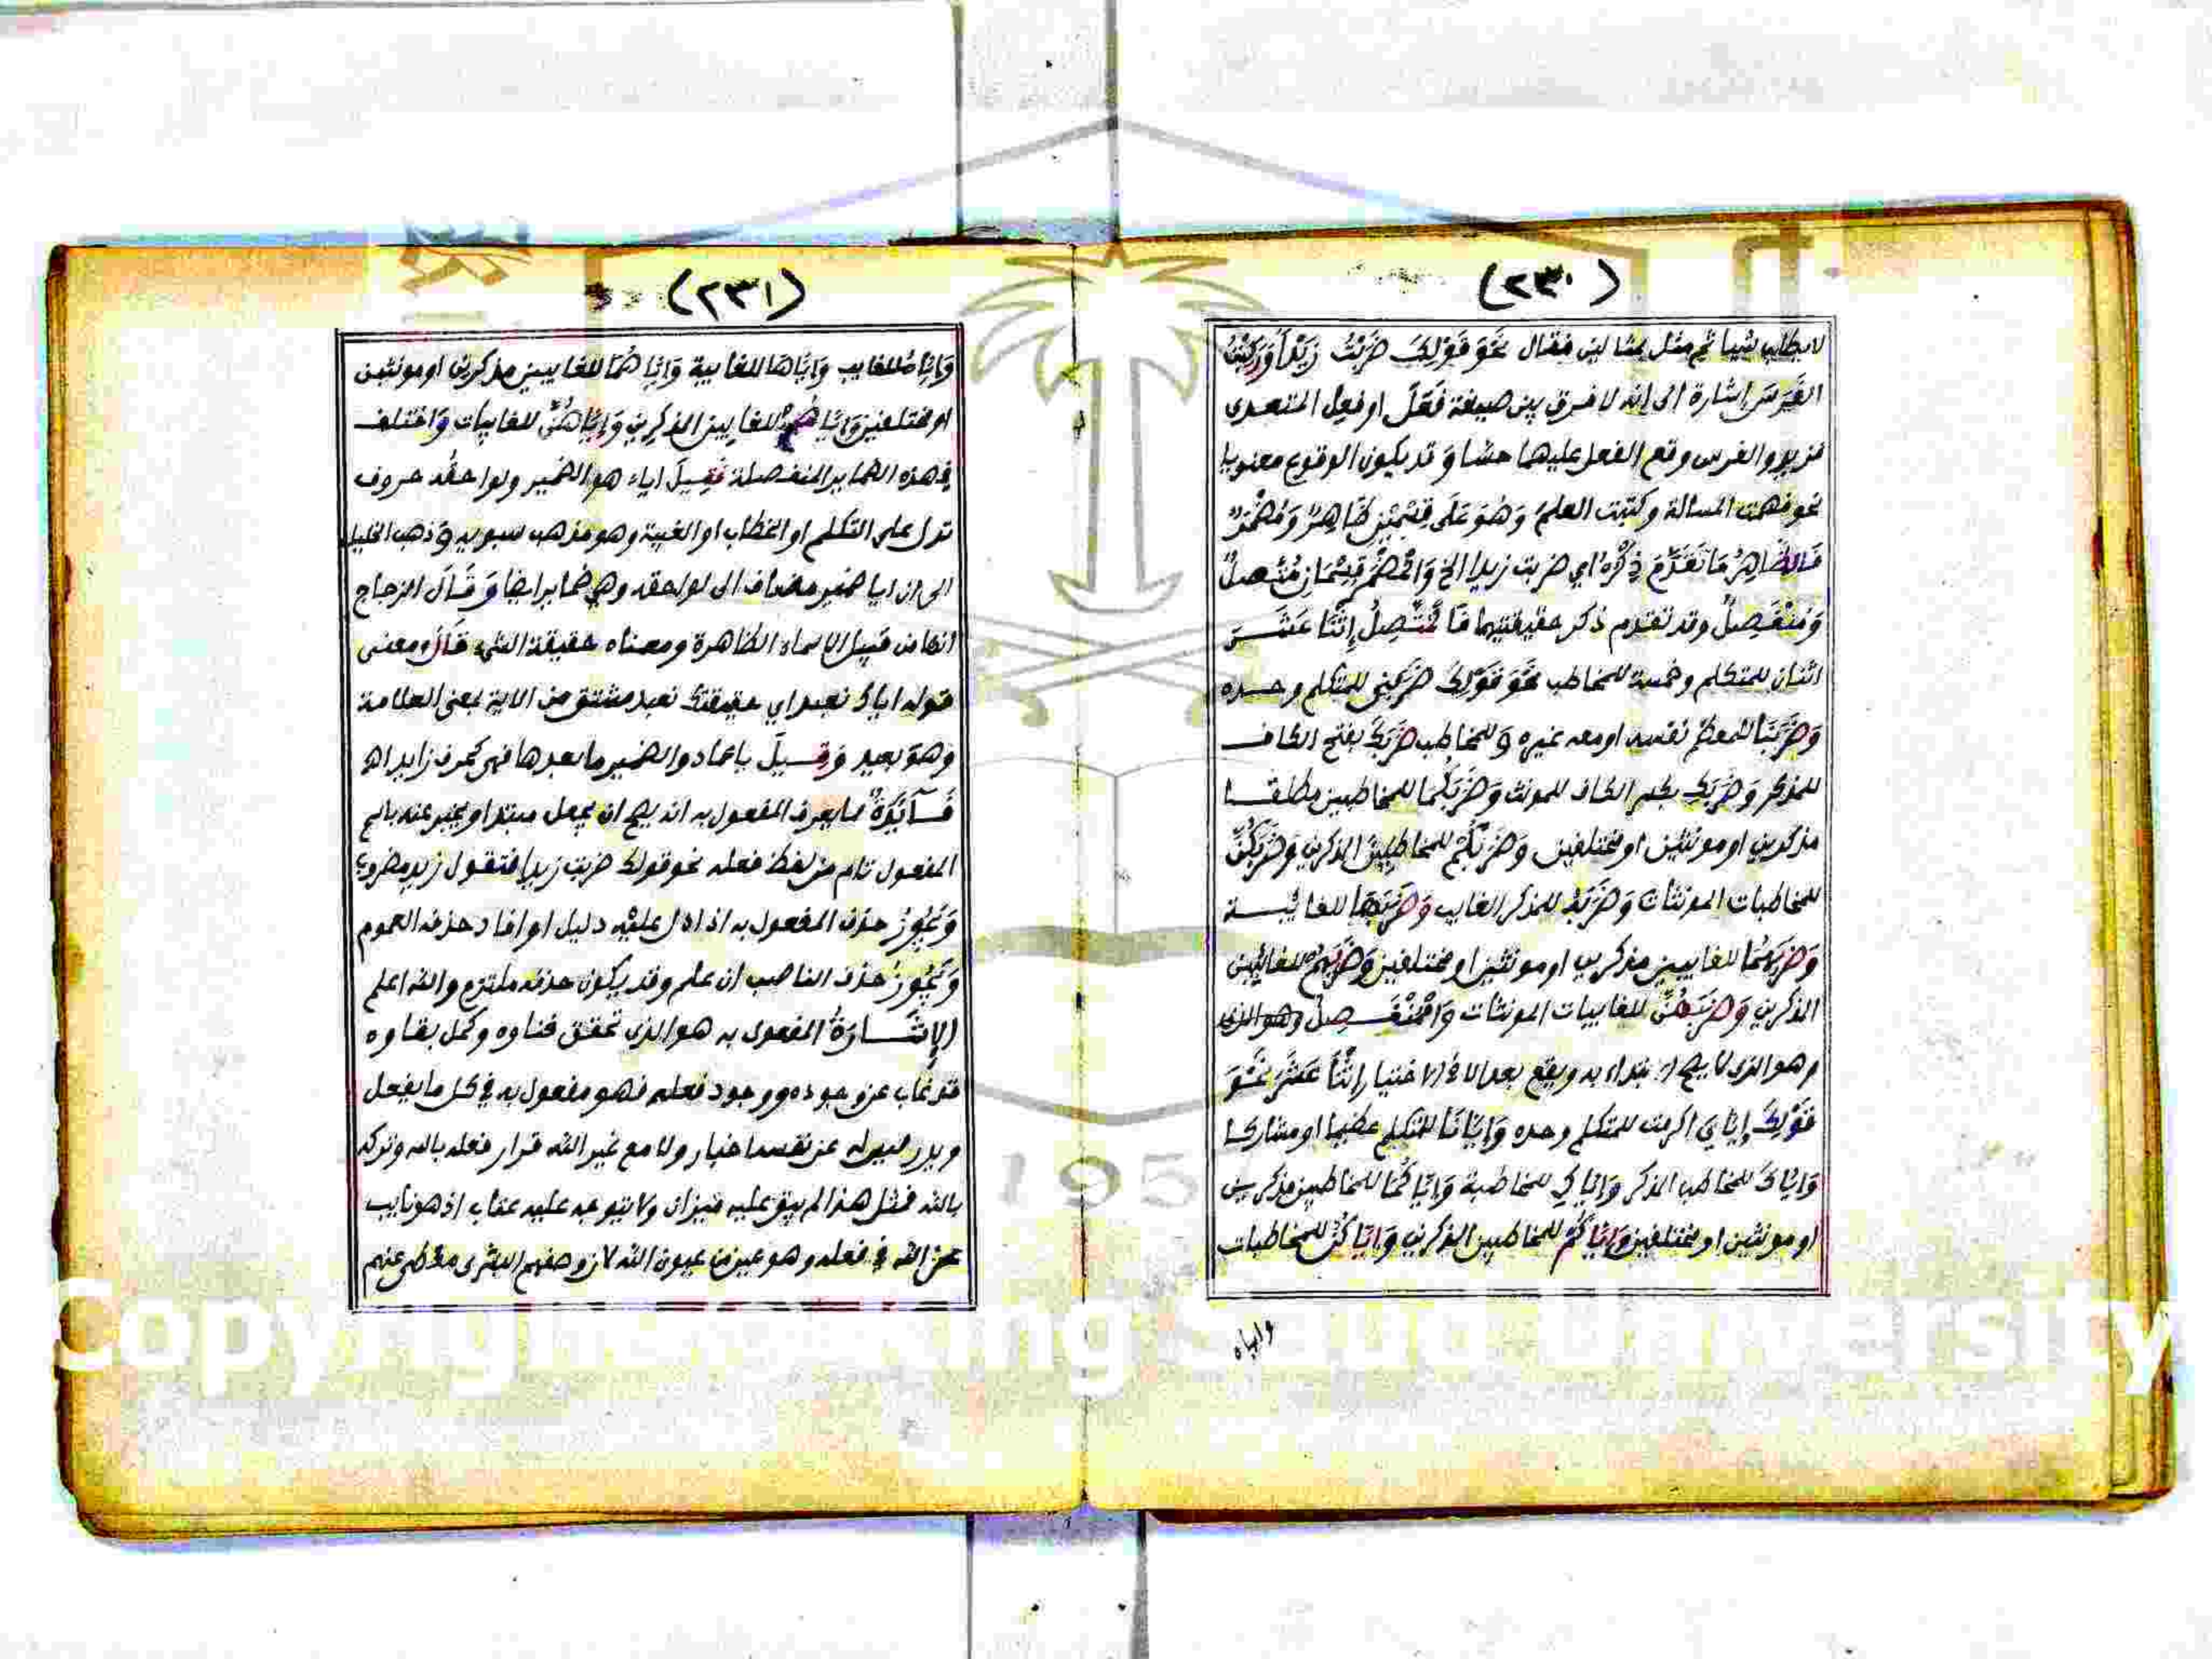 (٢٣٠)
لا يطلب شيا ثم مثل بمثالين فقال نَحْوَ قَوْلِكَ ضَرَبْتُ زَيْدًا وَرَكِبْتُ
الفَرَسَ إشارة الى انه لا فرق بين صيغة فَعَلَ او فعِل المتعدى
فزيد والفرس وقع الفعل عليهما حسّا وَقد يكون الوقوع معنويا
نحو فهمت المسالة وكتبت العلم وَهُوَ عَلَى قِسْمَيْنِ ظَاهِرٌ وَمُضْمَرٌ
فَالظَّاهِرُ مَا تَقَدَّمَ ذِكْرُهُ اي ضربت زيدا الخ وَالْمُضْمَرُ قِسْمَانِ مُتَّصِلٌ
وَمُنْفَصِلٌ وقد تقدم ذكر حقيقتيهما فَالْمُتَّصِلُ إِثْنَا عَشَرَ
اثنان للمتكلم وخمسة للمخاطب نَحْوَ قَوْلِكَ ضَرَبَنِي للمتكلم وحده
وَضَرَبَنَا للمعظم نفسه او معه غيره وَللمخاطب ضَرَبَكَ بفتح الكاف
للمذكر وَضَرَبَكِ بكسر الكاف للمونث وَضَرَبَكُمَا للمخاطبين مطلقا
مذكرين او مونثين او مختلفين وَضَرَبَكُمْ للمخاطبين الذكرين وَضَرَبَكُنَّ
للمخاطبات المونثات وَضَرَبَهُ للمذكر الغايب وَضَرَبَهَا للغائبة
وَضَرَبَهُمَا للغايبين مذكرين او مونثين او مختلفين وَضَرَبَهُمْ للغائبين
الذكرين وَضَرَبَهُنَّ للغايبات المونثات وَالْمُنْفَصِلُ وهو الذى
وهو الذى لا يصح الابتداء به ويقع بعد الا في الاختيار إِثْنَا عَشَرَ نَحْوَ
قَوْلِكَ إِيَّايَ اكرمت للمتكلم وحده وَإِيَّانَا للمتكلم عظيما او مشاركا
وَإِيَّاكَ للمخاطب الذكر وَإِيَّاكِ للمخاطبة وَإِيَّاكُمَا للمخاطبين مذكرين
او مونثين او مختلفين وَإِيَّاكُمْ للمخاطبين الذكرين وَإِيَّاكُنَّ للمخاطبات
واياه
(٢٣١)
وَإِيَّاهُ للغايب وَإِيَّاهَا للغايبة وَإِيَّاهُمَا للغايبين مذكرين او مونثين
او مختلفين وَإِيَّاهُمْ للغايبين الذكرين وَإِيَّاهُنَّ للغايبات وَاختلف
في هذه الضماير المنفصلة فَقِيلَ اياء هو الضمير ولواحقُه حروف
تدل على التكلم او الخطاب او الغيبة وهو مذهب سبويه وَذهب الخليل
الى ان ايا ضمير مضاف الى لواحقه وهي ضماير ايضا وَقَالَ الزجاج
انها من قبيل الاسماء الظاهرة ومعناه حقيقة الشيء قَالَ ومعنى
قوله اياك نعبد اي حقيقتك نعبد مشتق من الاية بمعنى العلامة
وهوَ بعيد وَقِيلَ ياعماد والضمير ما بعدها فهى كحرف زايد اه
فَائِدَةٌ مما يعرف المفعول به انه يصح ان يجعل مبتدا ويخبر عنه باسم
المفعول تام من لفظ فعله نحو قولك ضربت زيدا فتقول زيد مضروب
وَيَجُوزُ حذف المفعول به اذا دل عليْه دليل او افاد حذفه العموم
وَيَجُوزُ حذف الناصب ان علم وقد يكون حذفه ملتزم والله اعلم
الإشَارَةُ المفعول به هو الذى تحقق فناوه وكمل بقاوه
قد غاب عن وجوده ووجود فعله فهو مفعول به في كل ما يفعل
ويدر ليس له عن نفسه اخبار ولا مع غير الله قرار فعله بالله وتركه
بالله فمثل هذا لم يبق عليه ميزان ولا يتوجه عليه عقاب اذ هو نايب
عن الله في فعله وهو عين من عيون الله لان وصفهم البشرى مغطى عنهم
Copyright © King Saud University
195